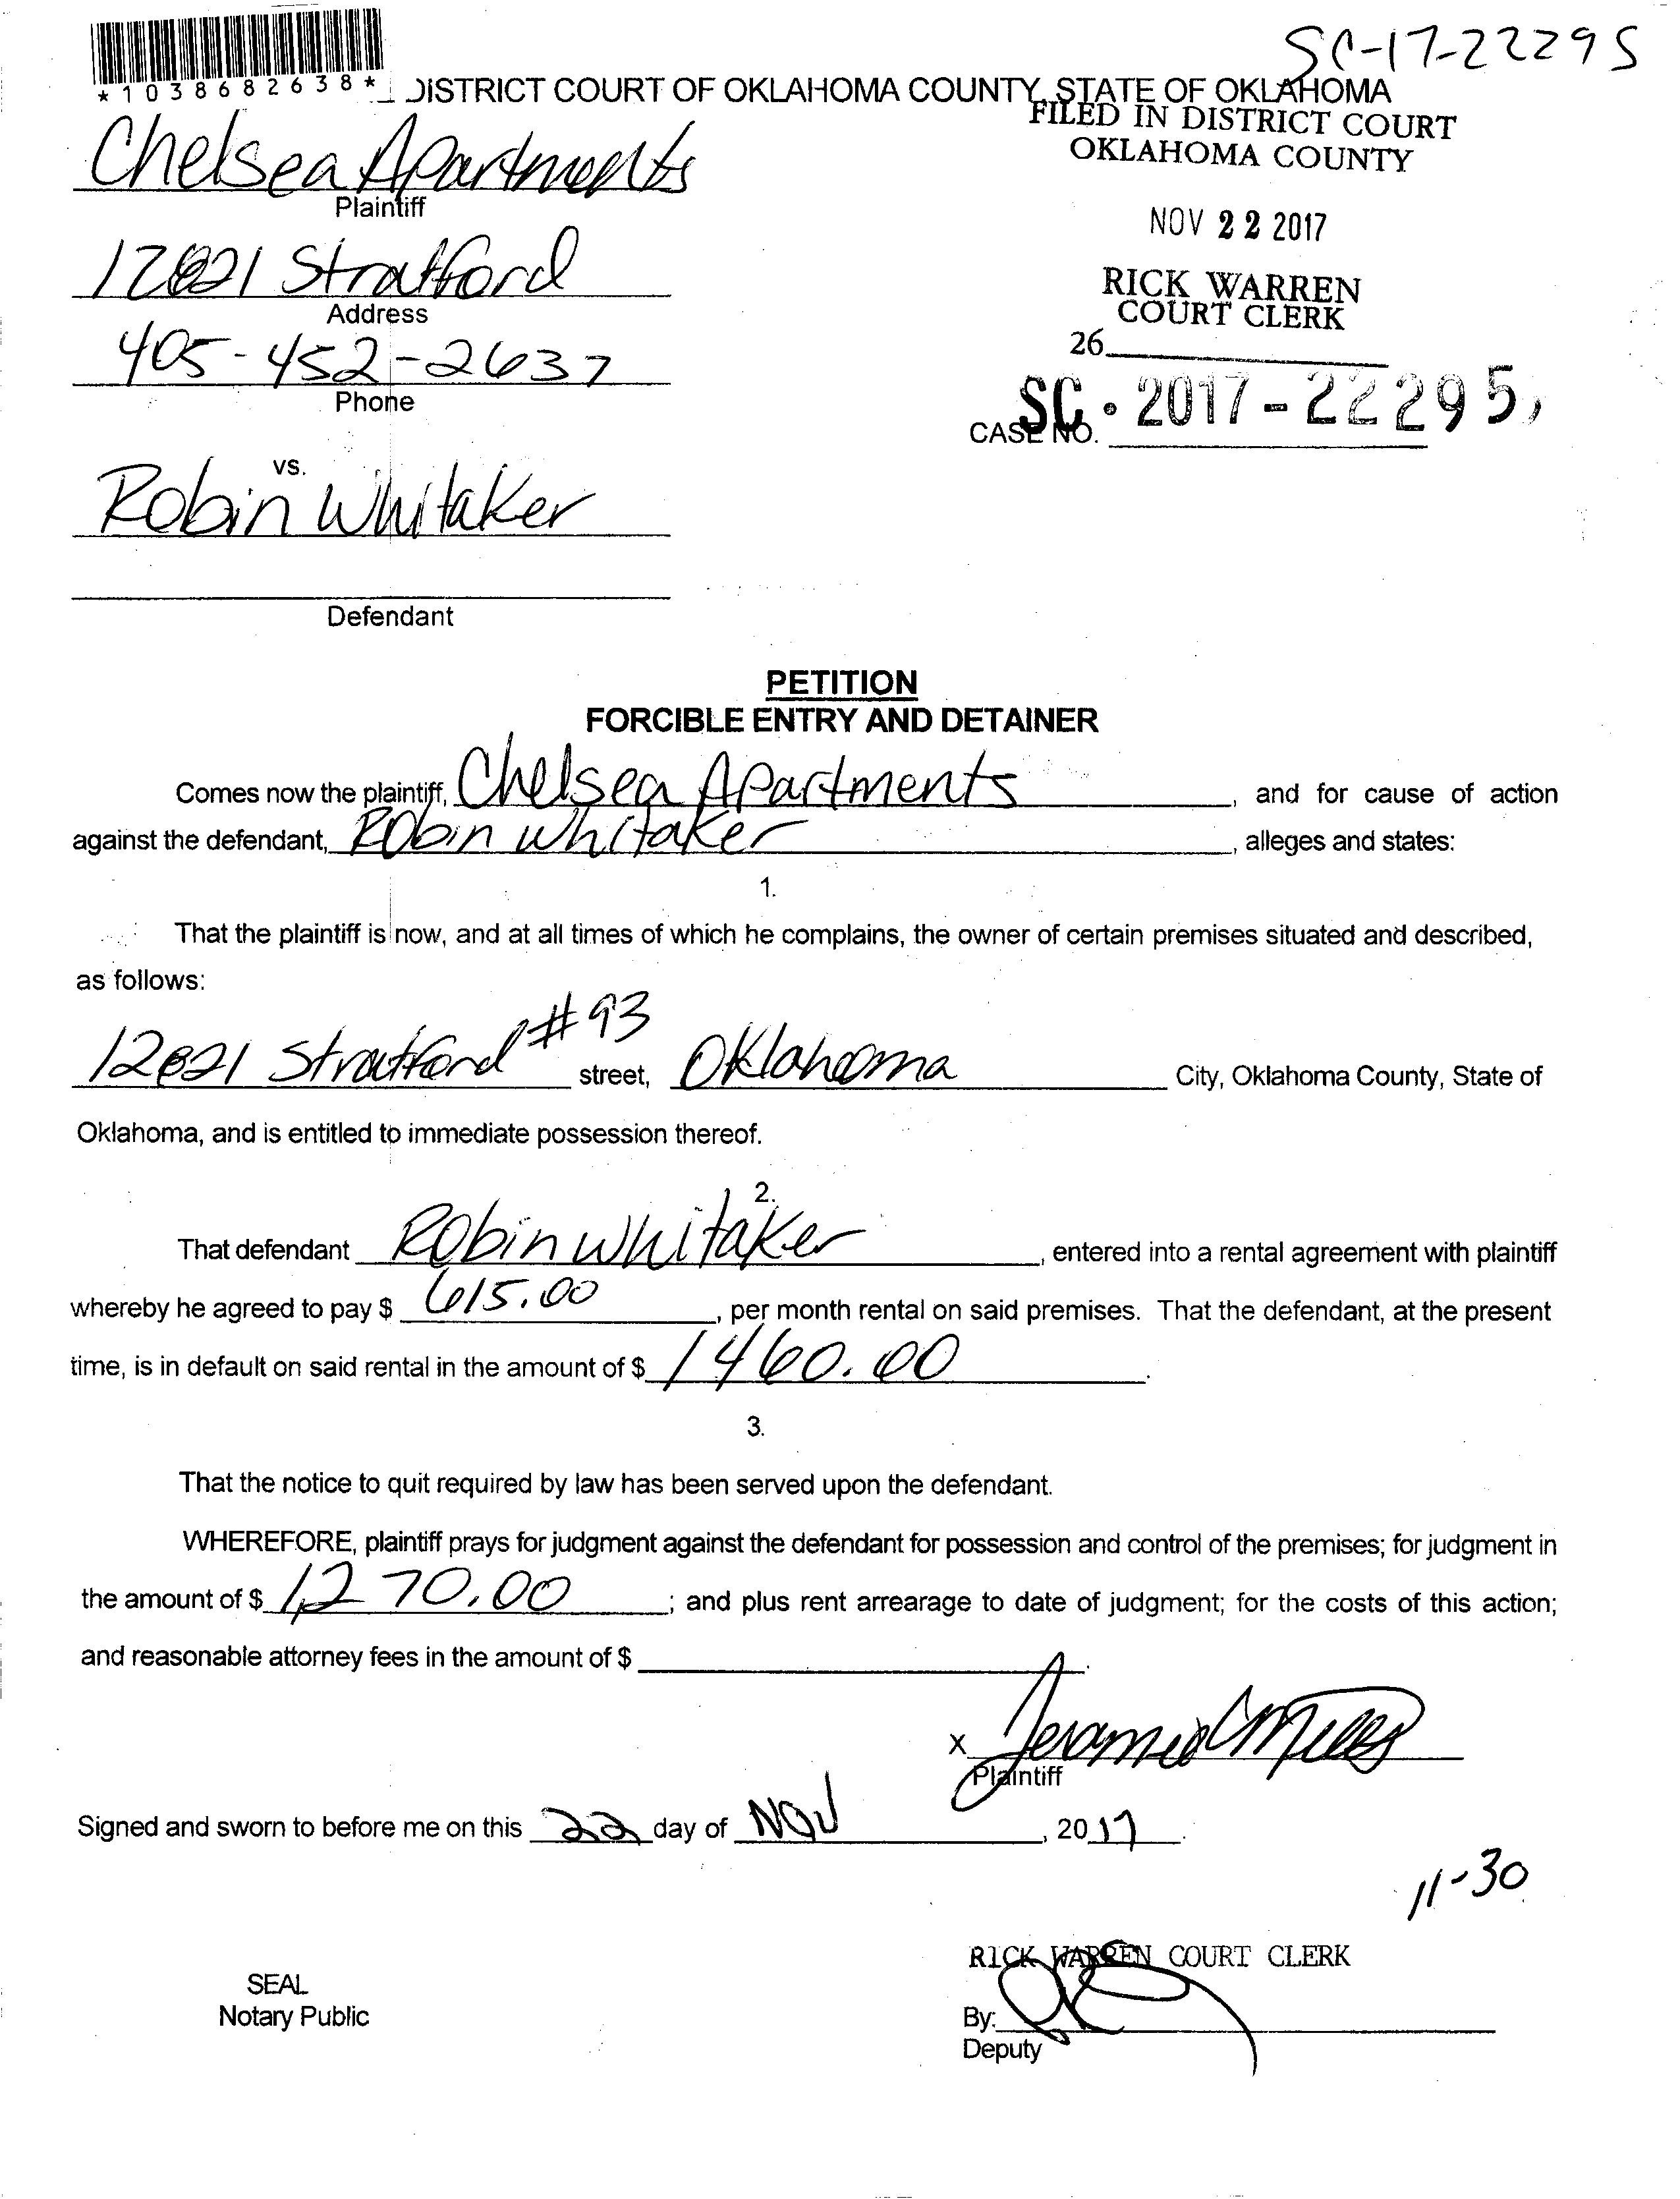 SC-17-22295
*1038682638*
DISTRICT COURT OF OKLAHOMA COUNTY, STATE OF OKLAHOMA
FILED IN DISTRICT COURT
OKLAHOMA COUNTY
Chelsea Apartments
Plaintiff
NOV 22 2017
12821 Stratford
Address
RICK WARREN
COURT CLERK
405-452-2637
Phone
26
SC-2017-22295
CASE NO.
vs.
Robin Whitaker
Defendant
PETITION
FORCIBLE ENTRY AND DETAINER
Comes now the plaintiff, Chelsea Apartments, and for cause of action
against the defendant, Robin Whitaker, alleges and states:
1.
That the plaintiff is now, and at all times of which he complains, the owner of certain premises situated and described,
as follows:
12821 Stratford #93 street, Oklahoma City, Oklahoma County, State of
Oklahoma, and is entitled to immediate possession thereof.
2.
That defendant Robin Whitaker, entered into a rental agreement with plaintiff
whereby he agreed to pay $ 615.00, per month rental on said premises. That the defendant, at the present
time, is in default on said rental in the amount of $ 1460.00.
3.
That the notice to quit required by law has been served upon the defendant.
WHEREFORE, plaintiff prays for judgment against the defendant for possession and control of the premises; for judgment in
the amount of $ 1,270.00; and plus rent arrearage to date of judgment; for the costs of this action;
and reasonable attorney fees in the amount of $
X
Plaintiff
Signed and sworn to before me on this 22 day of Nov, 2017.
11-30
RICK WARREN COURT CLERK
SEAL
Notary Public
By:
Deputy